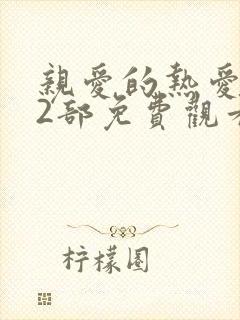 親愛的熱愛
2部免費觀看
柠檬圆